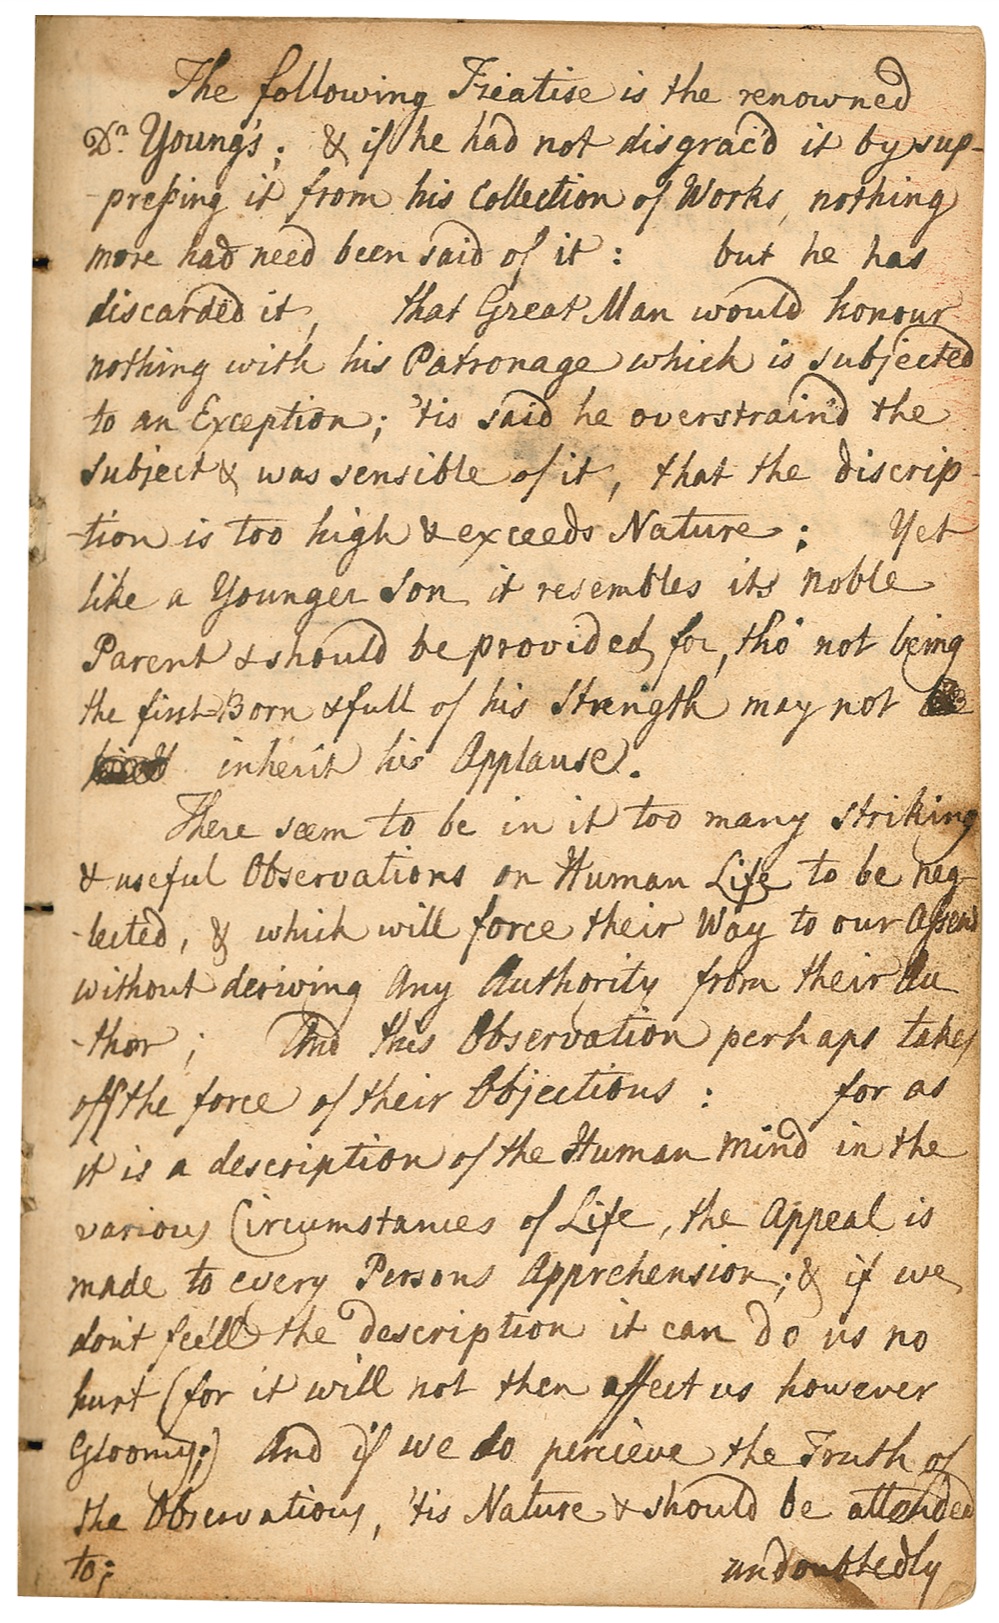 The following Treatise is the renowned
Dr. Young's; & if he had not disgrac'd it by sup-
-preſsing it from his Collection of Works, nothing
more had need been said of it: but he has
discarded it, that Great Man would honour
nothing with his Patronage which is subjected
to an Exception; 'tis said he overstrain'd the
subject & was sensible of it, that the discrip-
-tion is too high & exceeds Nature; Yet
like a Younger Son it resembles its noble
Parent & should be provided for, tho' not being
the first=Born & full of his Strength may not
inherit his Applause.
There seem to be in it too many striking
& useful Observations on Human Life to be neg-
-lected, & which will force their Way to our Aſsent
without deriving any Authority from their Au
-thor; And this Observation perhaps takes
off the force of their Objections: for as
it is a description of the Human Mind in the
various Circumstances of Life, the Appeal is
made to every Persons Apprehension; & if we
don't feell the description it can do us no
hurt (for it will not then affect us however
Gloomy;) And if we do percieve the Truth of
the Observations, 'tis Nature & should be attended
to; undoubtedly